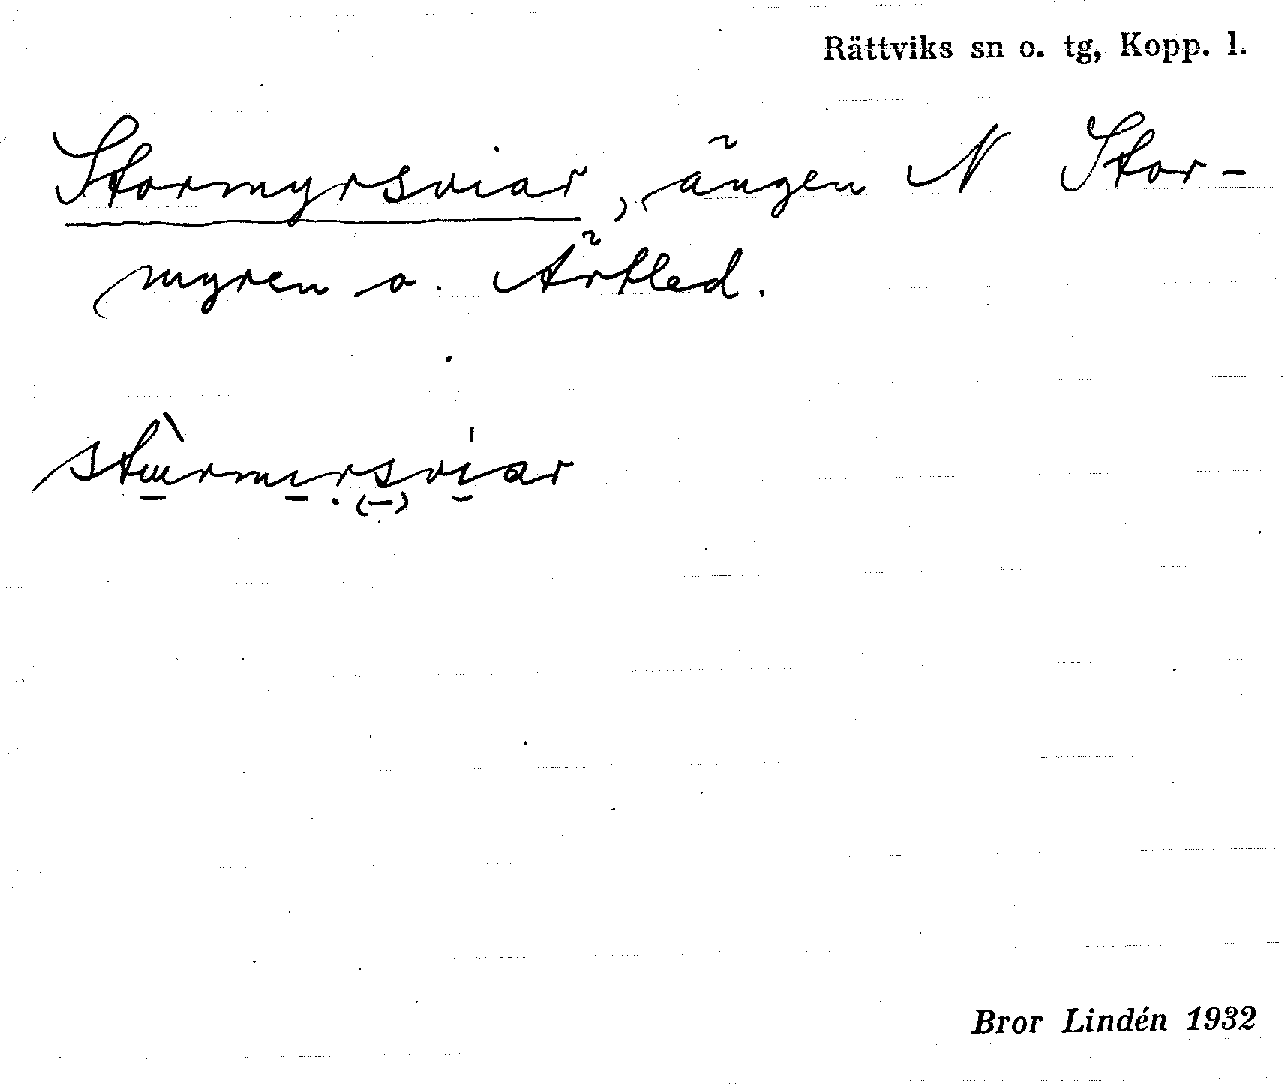 Rättviks sn o. tg, Kopp. l.
Stormyrsviar, ängen N Stor-
myren o. Ärtled.
stùrmırsvıar
Bror Lindén 1932